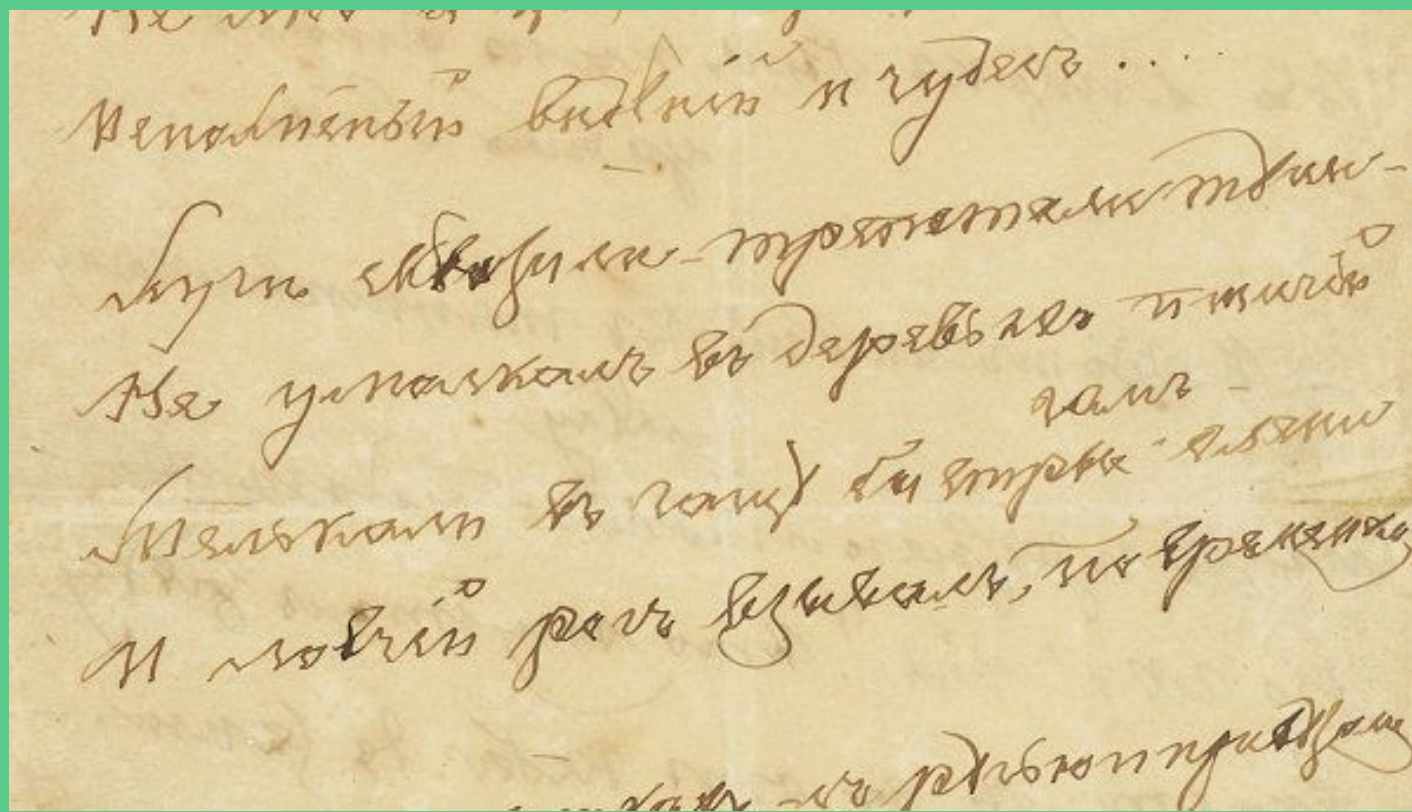 Исполненный видѣній и чудесъ....
Лучи сквозили - трепетали тѣни -
Не умолкалъ въ деревьяхъ птичій
гамъ -
Мелькали въ чащѣ быстрые олени
И ловчій рогъ взывалъ по временамъ